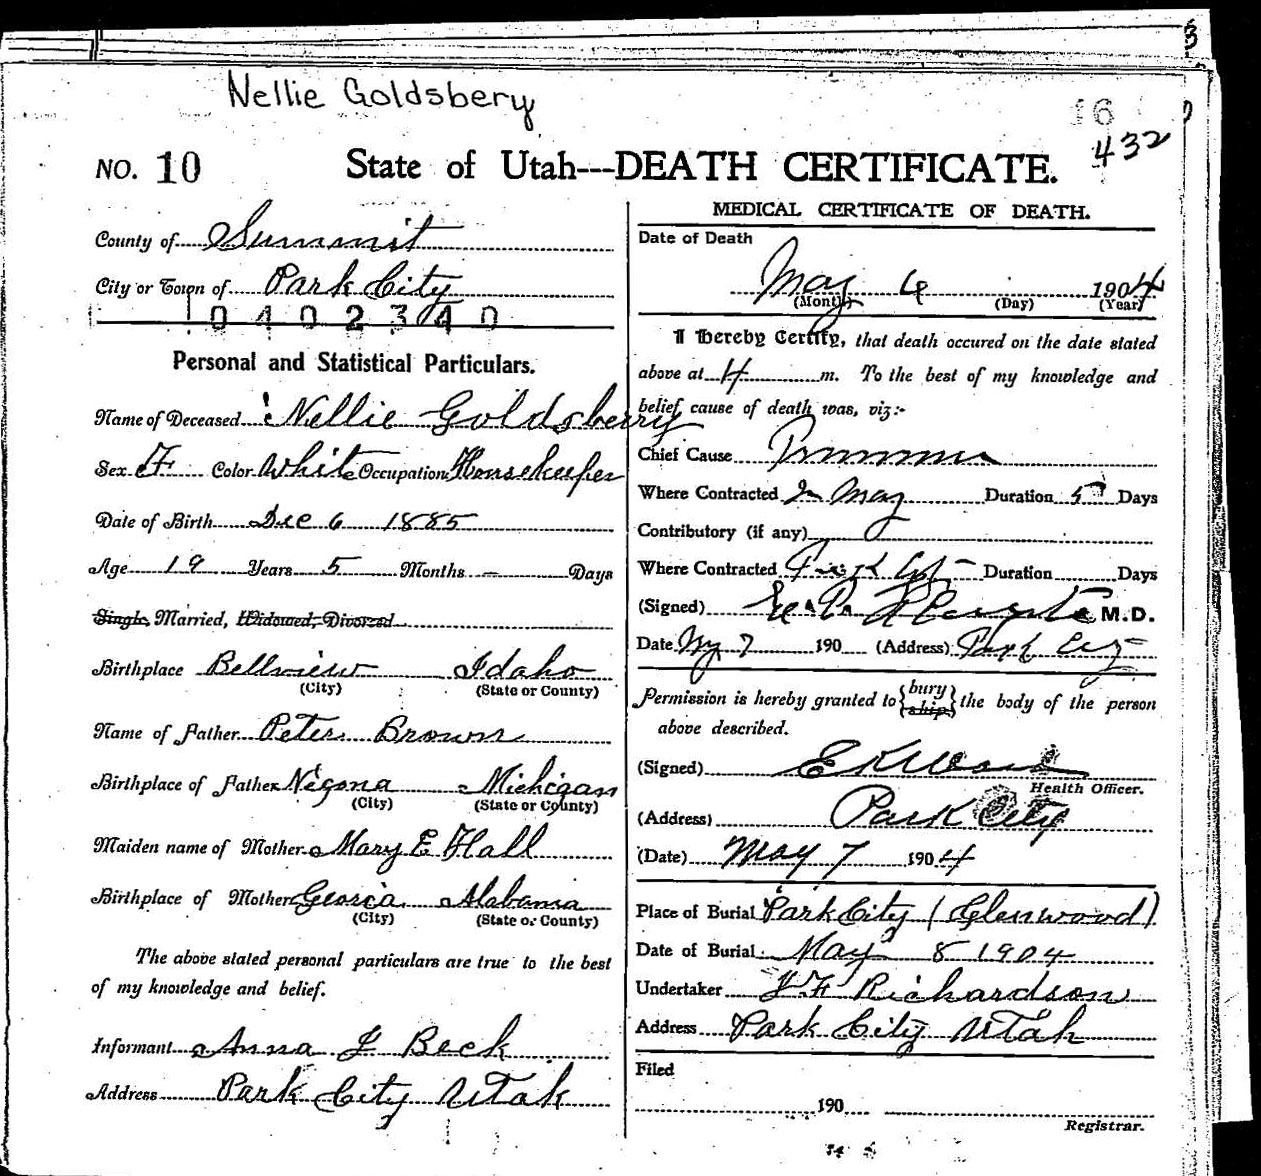 Nellie Goldsbery
16
432
NO. 10 State of Utah---DEATH CERTIFICATE.
County of Summit
City or Town of Park City
0 4 0 2 3 4 0
Personal and Statistical Particulars.
Name of Deceased Nellie Goldsberry
Sex F Color White Occupation Housekeeper
Date of Birth Dec 6 1885
Age 19 Years 5 Months - Days
Single, Married, Widowed, Divorced
Birthplace Bellview Idaho
(City) (State or County)
Name of Father Peter Brown
Birthplace of Father Michigan
(City) (State or County)
Maiden name of Mother Mary E Hall
Birthplace of Mother Georgia Alabama
(City) (State or County)
The above stated personal particulars are true to the best
of my knowledge and belief.
Informant Anna J Beck
Address Park City Utah
MEDICAL CERTIFICATE OF DEATH.
Date of Death
May 4 1904
(Month) (Day) (Year)
I hereby Certify, that death occured on the date stated
above at 4 m. To the best of my knowledge and
belief, cause of death was, viz:-
Chief Cause
Where Contracted In May Duration 5 Days
Contributory (if any)
Where Contracted Park City Duration Days
(Signed) M.D.
Date My 7 190 (Address) Park City
Permission is hereby granted to {bury ship} the body of the person
above described.
(Signed)
Health Officer.
(Address) Park City
(Date) May 7 1904
Place of Burial Park City (Glenwood)
Date of Burial May 8 1904
Undertaker Richardson
Address Park City Utah
Filed
190
Registrar.